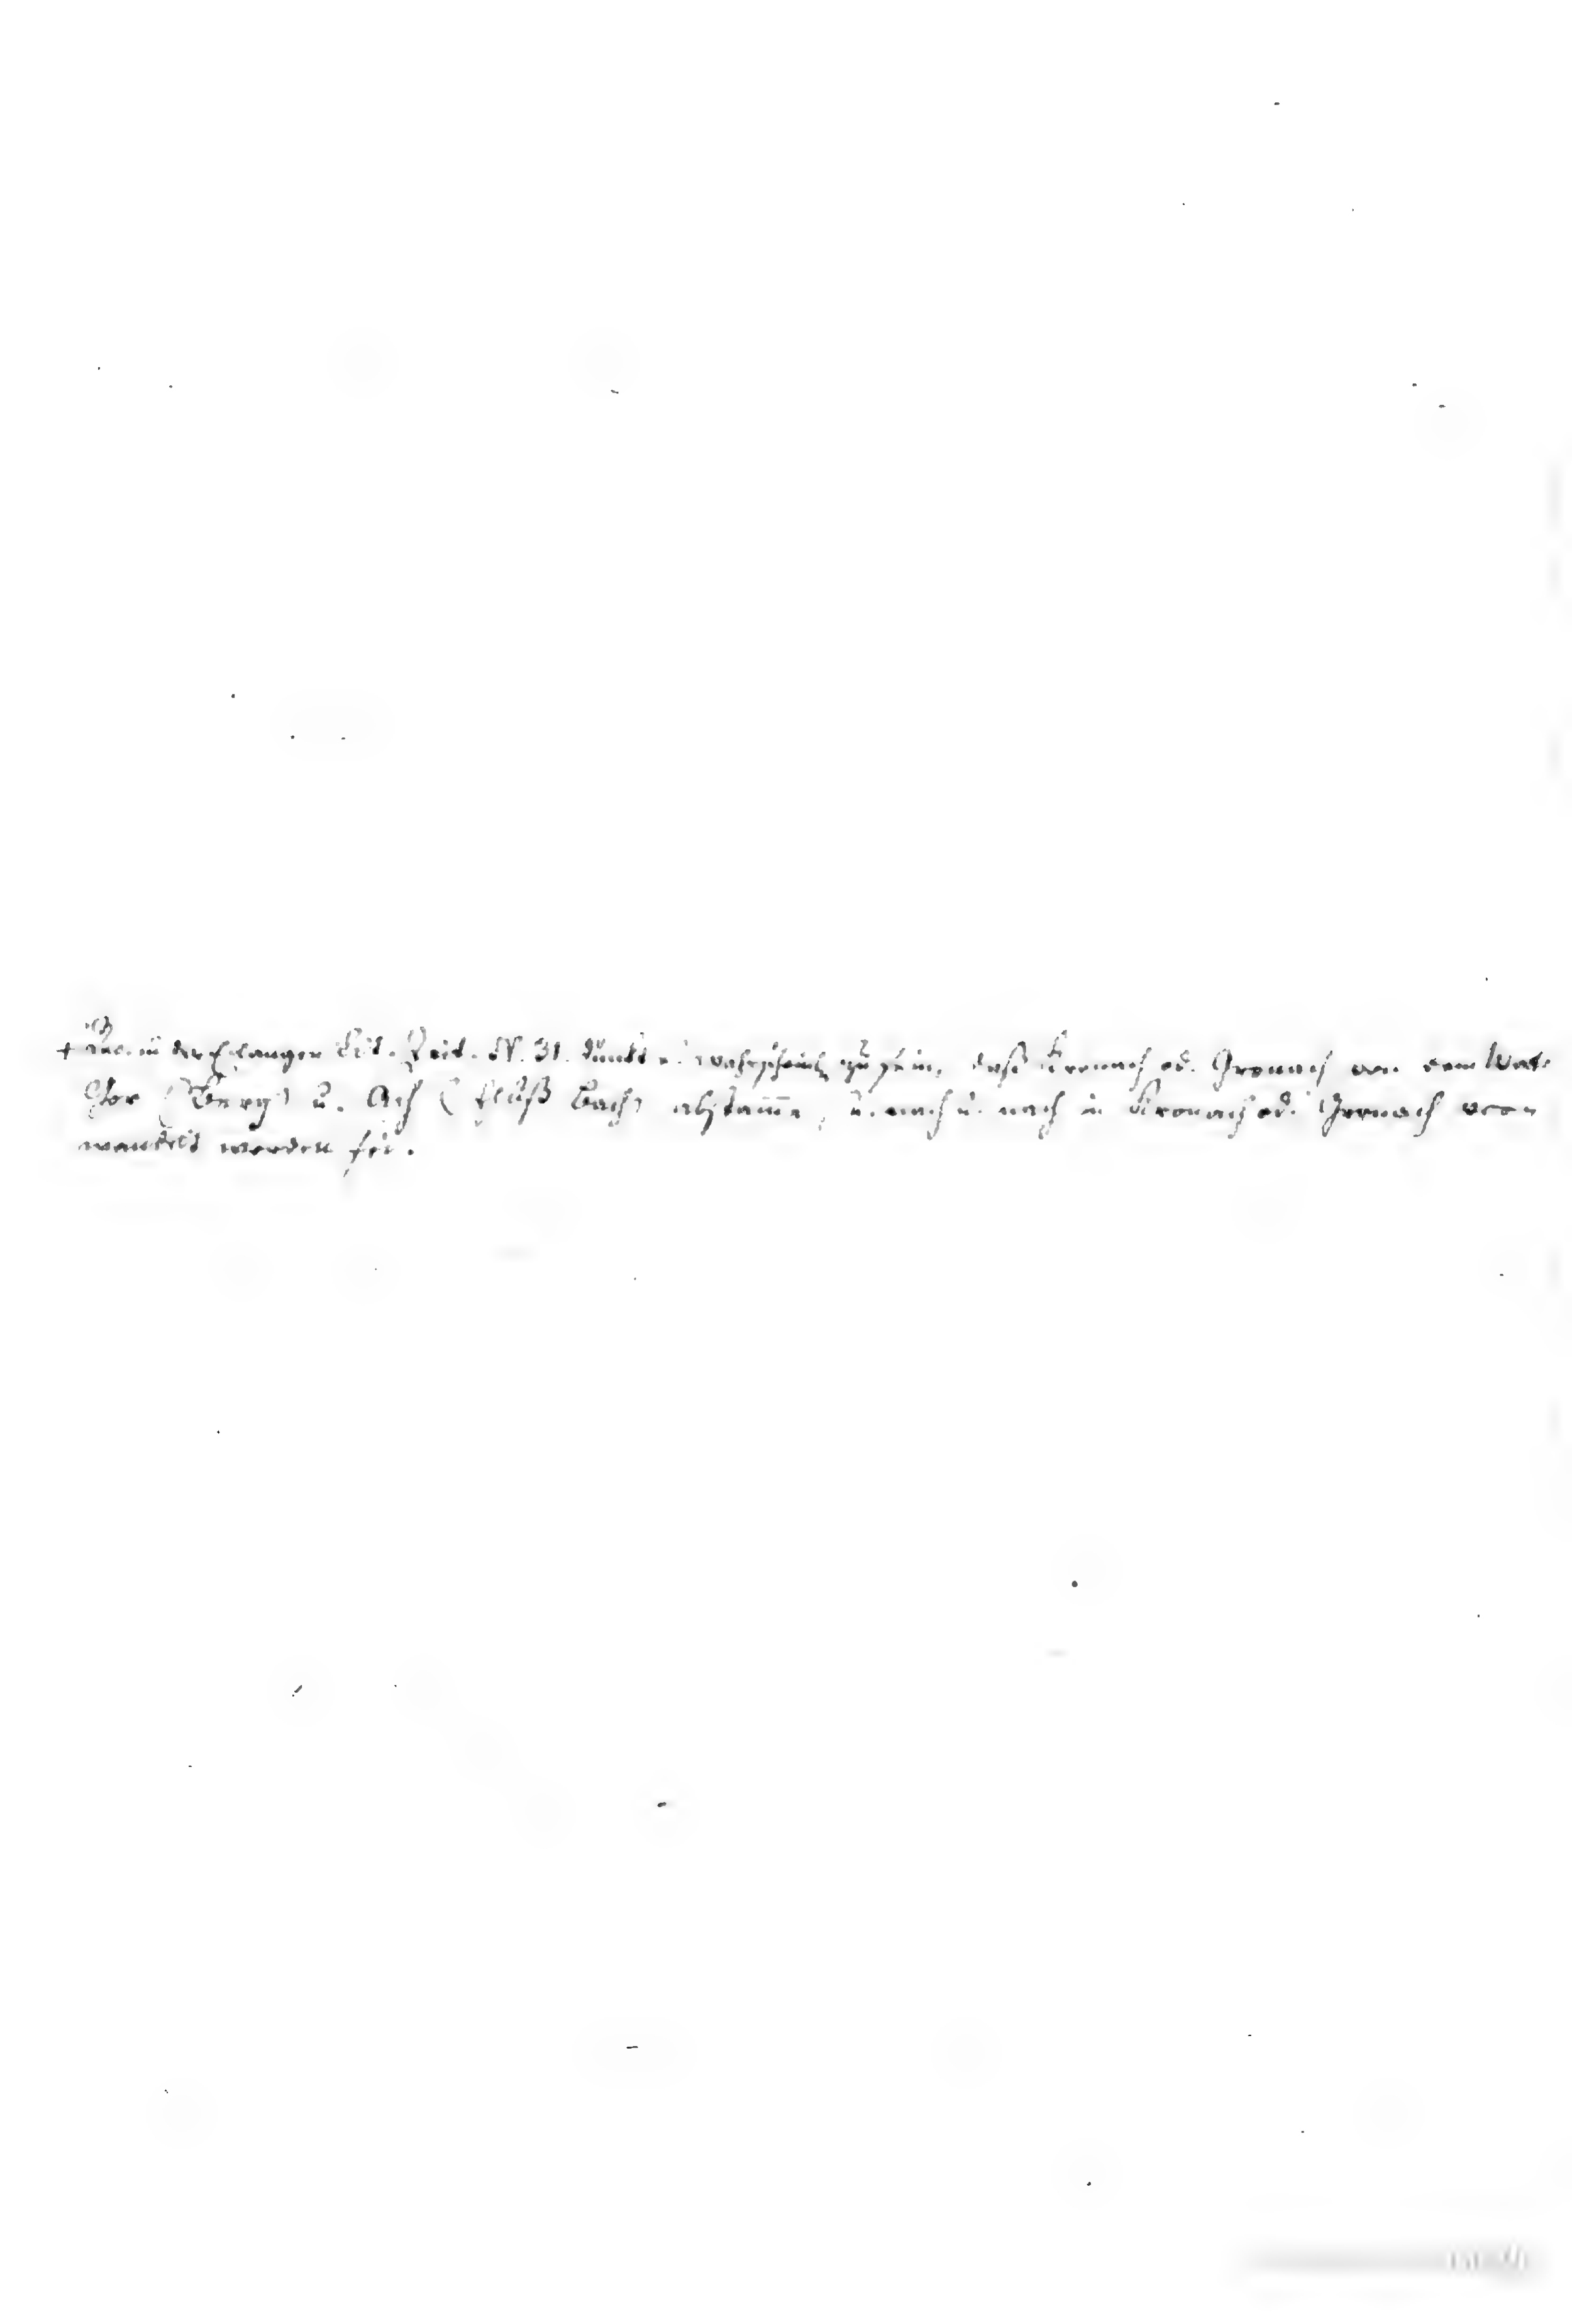 + Rec. in der Erlanger Lit. Zeit. N. 31. dünkt es wahrscheinlich zu sein, daß Kronach od. Gronach von dem
(Berg) u. Ach (Fluß Bach) abstamme, u. nach u. nach in Kronach od. Gronach
wandelt worden sei.